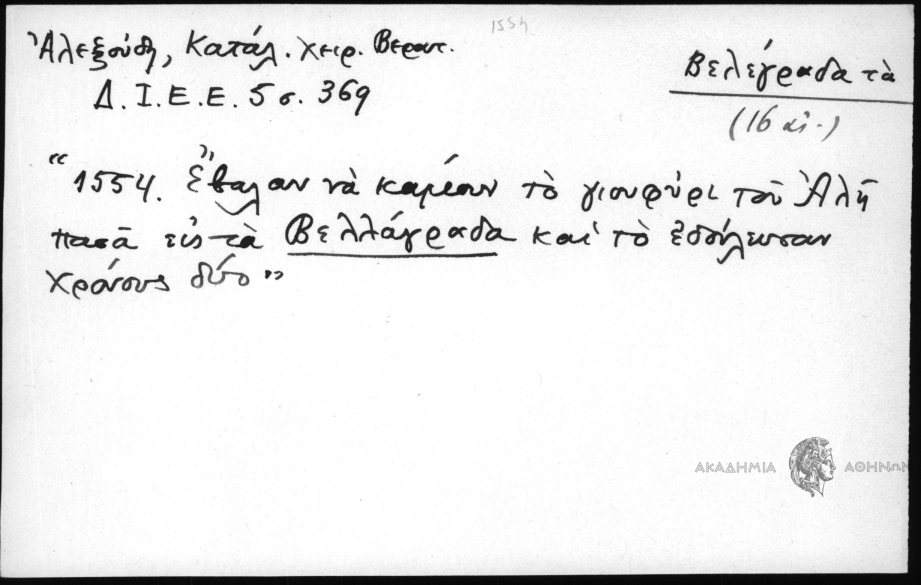 1554
Ἀλεξούδη, Κατάλ. χειρ. Βερατ.
Δ.Ι.Ε.Ε. 5 σ. 369
Βελέγραδα τὰ
(16 αἰ.)
"1554. Ἔβαλαν νὰ καμέουν τὸ γιουφύρι τοῦ Ἀλῆ
πασᾶ εἰς τὰ Βελλάγραδα καὶ τὸ ἐδούλευσαν
χρόνους δύο"
ΑΚΑΔΗΜΙΑ ΑΘΗΝΩΝ